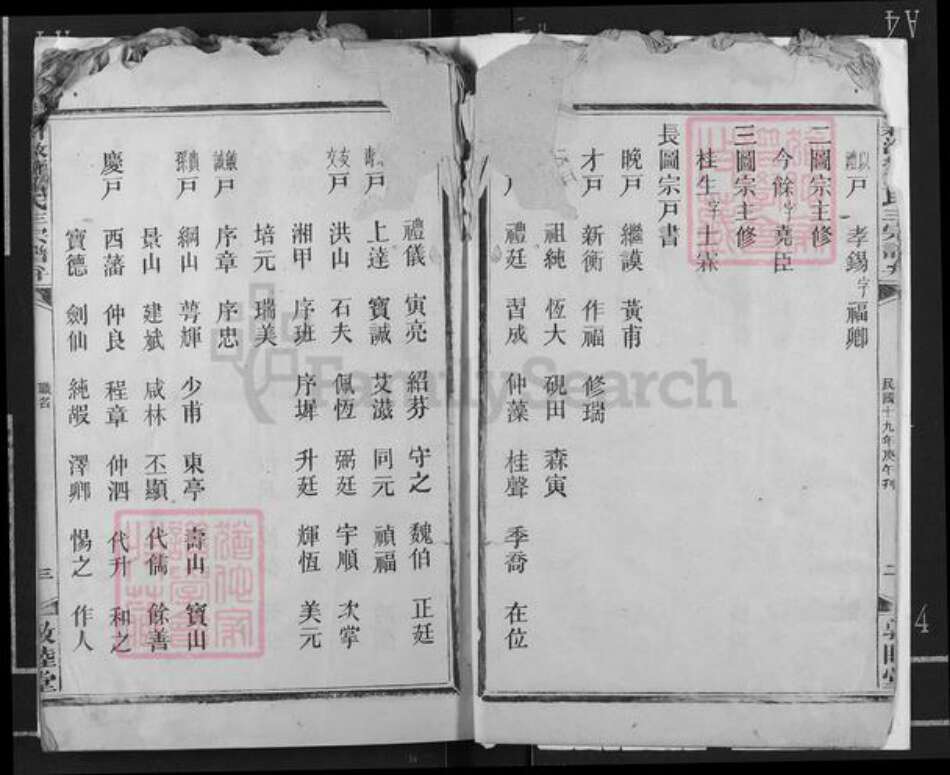 以禮戶 孝錫字福卿
二圖宗主修
今餘字堯臣
三圖宗主修
桂生字士霖
長圖宗戶書
晚戶 繼謨 黃甫
才戶 新衡 作福 修瑞
祖純 恆大 硯田 森寅
禮廷 習成 仲藻 桂聲 季喬 在位
民國十九年庚午刊
二
禮儀 寅亮 紹芬 守之 魏伯 正廷
戶 上達 寶誠 艾滋 同元 禎福
友交戶 洪山 石夫 佩恆 弼廷 宇順 次掌
湘甲 序班 序墀 升廷 輝恆 美元
培元 瑞美
戶 序章 序忠
戶 綱山 萼輝 少甫 東亭 壽山 寶山
景山 建斌 咸林 丕顯 代儒 餘善
慶戶 西藩 仲良 程章 仲泗 代升 和之
寶德 劍仙 純嘏 澤卿 惕之 作人
職名
三
敦睦堂
FamilySearch
4